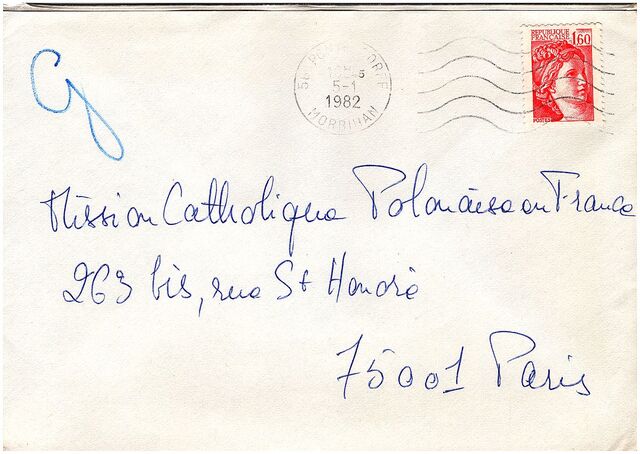 REPUBLIQUE
FRANÇAISE
1,60
POSTES
56
5-1
1982
MORBIHAN
Mission Catholique Polonaise en France
263 bis, rue St Honoré
75001 Paris